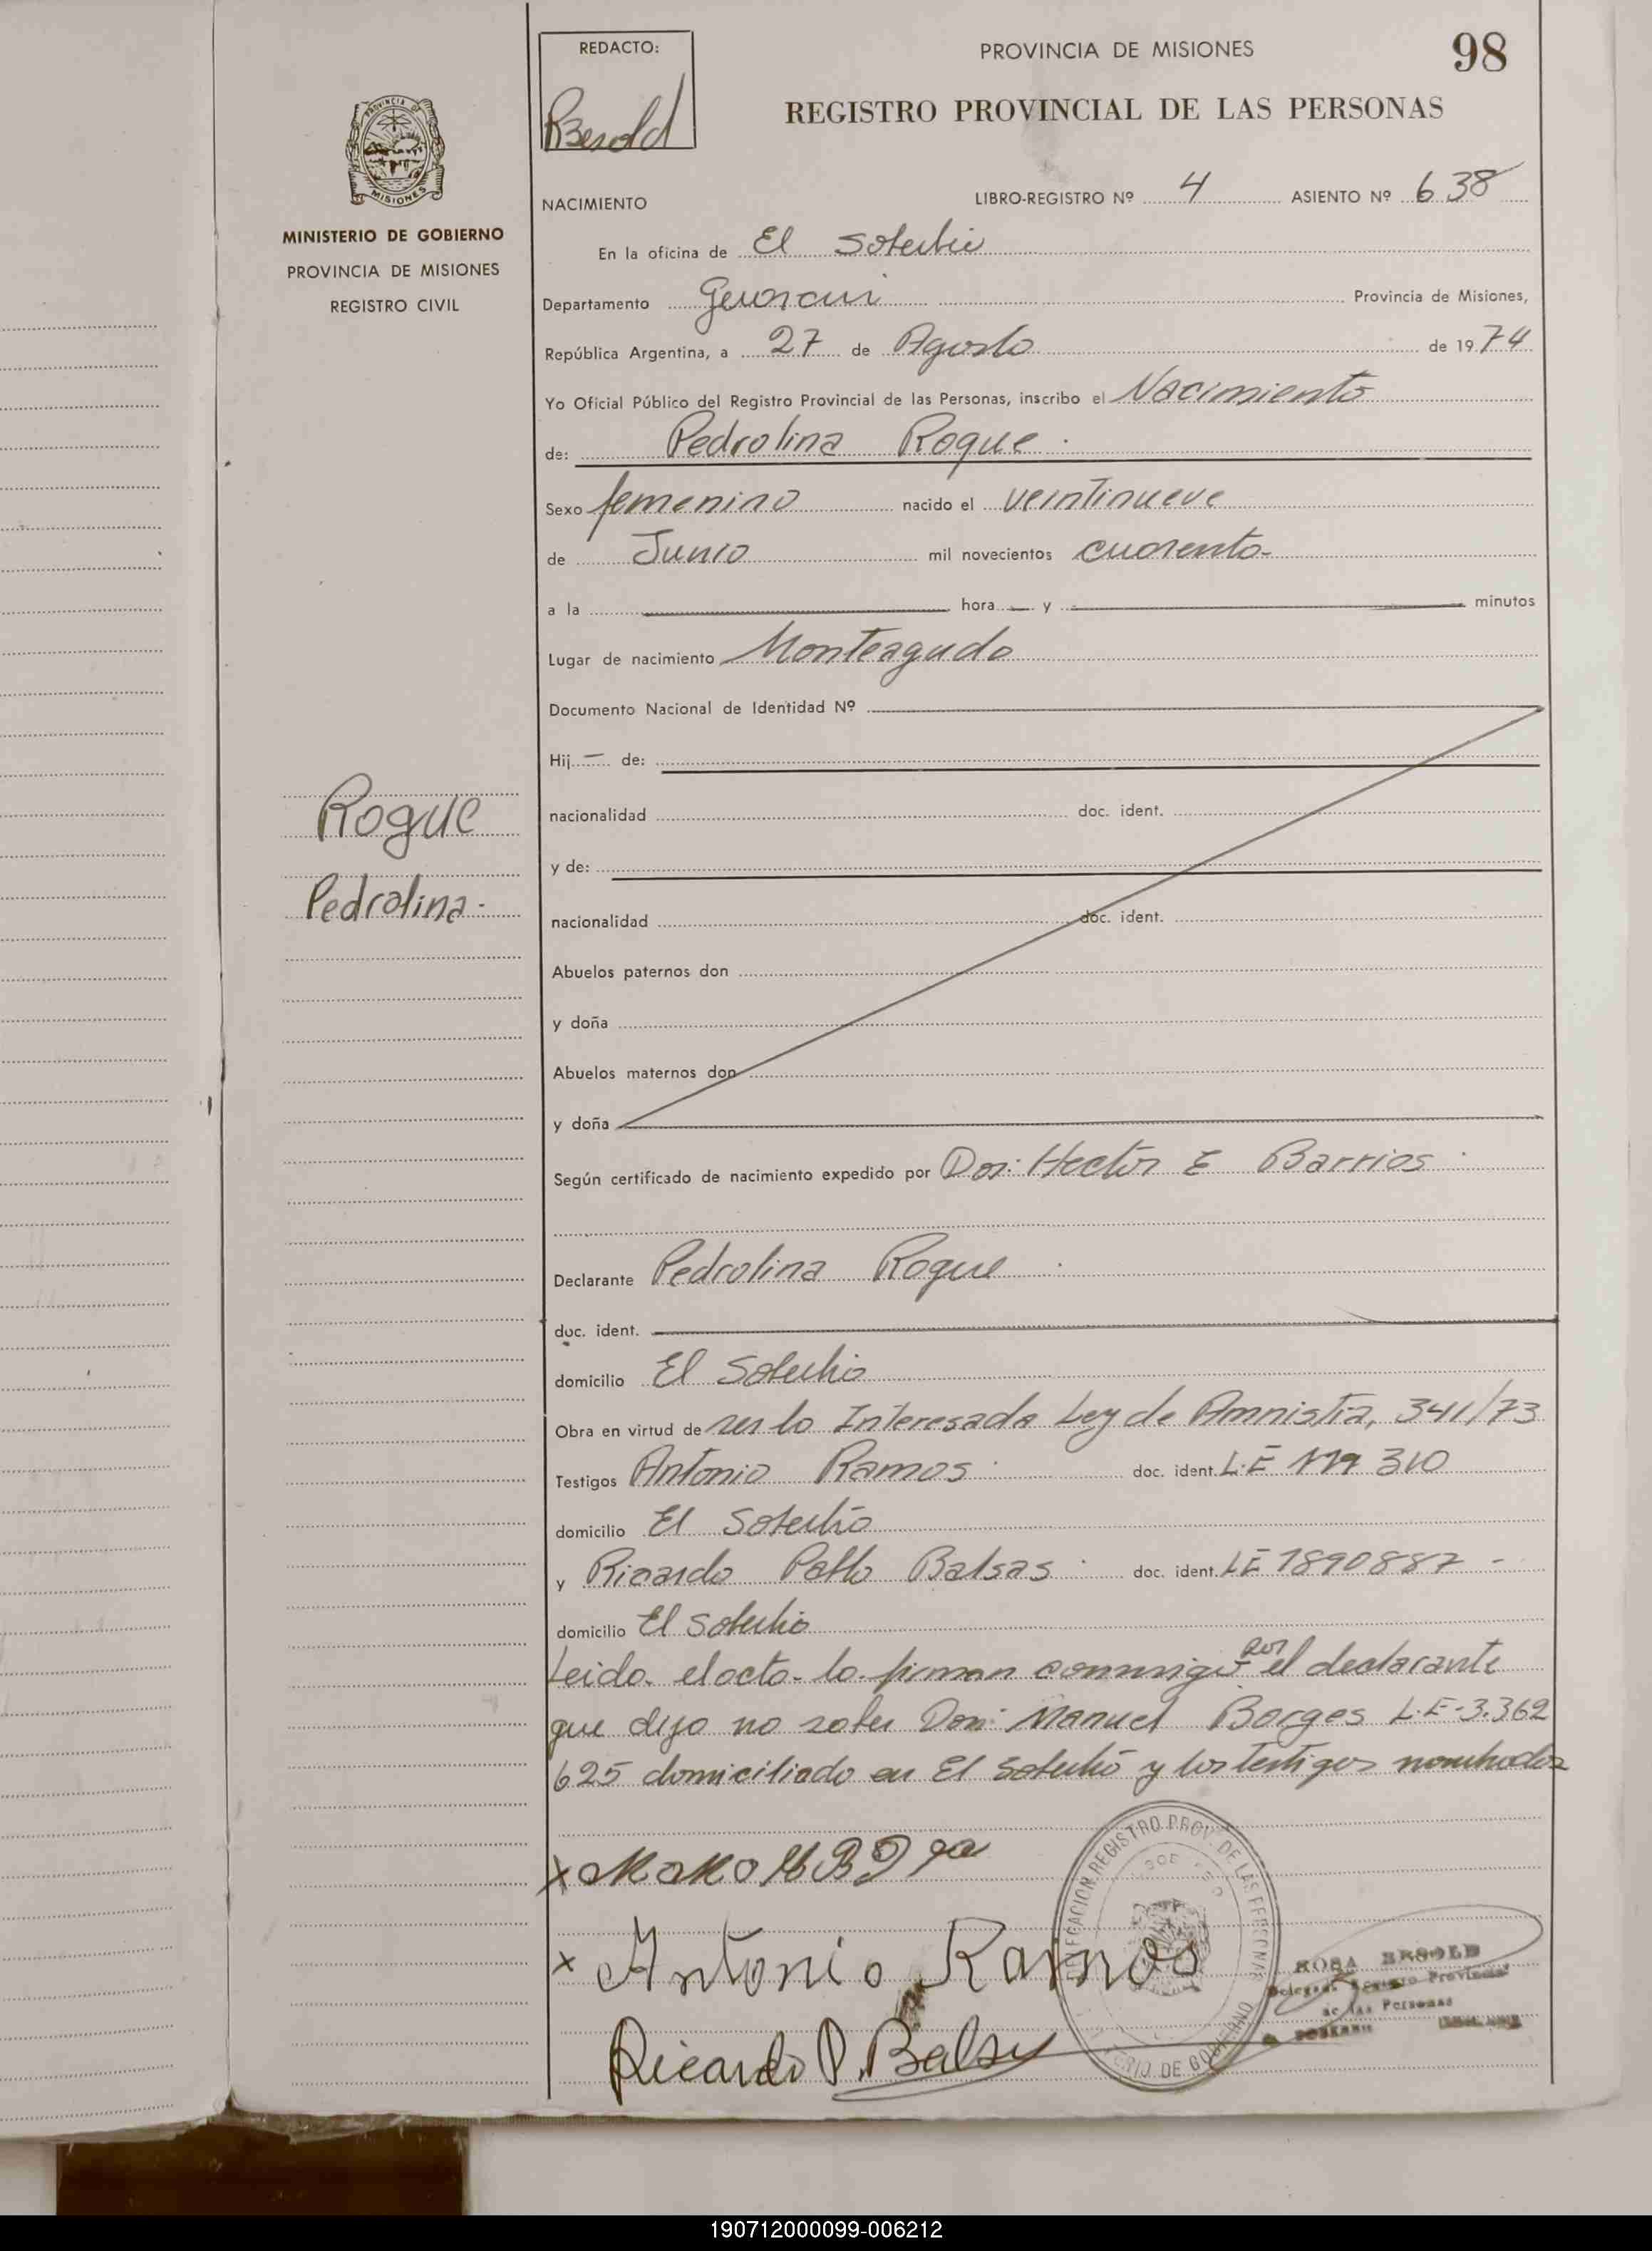 REDACTO:
PROVINCIA DE MISIONES
98
REGISTRO PROVINCIAL DE LAS PERSONAS
PROVINCIA DE
MISIONES
MINISTERIO DE GOBIERNO
PROVINCIA DE MISIONES
REGISTRO CIVIL
NACIMIENTO
LIBRO-REGISTRO Nº 4 ASIENTO Nº 638
En la oficina de El Soberbio
Departamento Guarani Provincia de Misiones,
República Argentina, a 27 de Agosto de 1974
Yo Oficial Público del Registro Provincial de las Personas, inscribo el Nacimiento
de: Pedrolina Roque.
Sexo femenino nacido el veintinueve
de Junio mil novecientos cuarenta-
a la hora y minutos
Lugar de nacimiento Monteagudo
Documento Nacional de Identidad Nº
Hij de:
Roque
nacionalidad doc. ident.
y de:
Pedrolina-
nacionalidad doc. ident.
Abuelos paternos don
y doña
Abuelos maternos don
y doña
Según certificado de nacimiento expedido por Hector E Barrios
Declarante Pedrolina Roque
doc. ident.
domicilio El Soberbio
Obra en virtud de ser la Interesada Ley de Amnistia, 341/73
Testigos Antonio Ramos doc. ident. L.E 310
domicilio El Soberbio
y Ricardo Pablo Balsas doc. ident. LE 1890887 -
domicilio El Soberbio
Leida el acta- la firman conmigo por el declarante
que dijo no saber Don Manuel Borges L.E-3.362
625 domiciliado en El Soberbio y los testigos nombrados
x
x Antonio Ramos
DELEGACION REGISTRO PROV. DE LAS PERSONAS
DE GOBIERNO
ROSA BESOLD
Registro Provincial
de las Personas
Ricardo P. Balsas
190712000099-006212